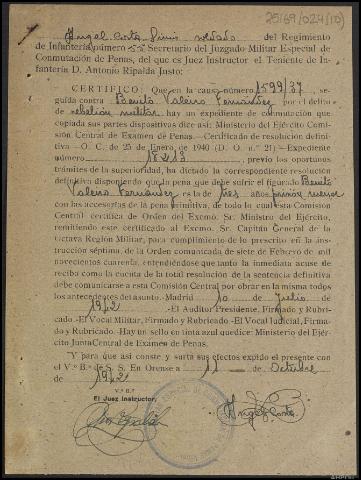 25169/024(10)
Angel Costa Pinis soldado del Regimiento
de Infantería número 55 Secretario del Juzgado Militar Especial de
Conmutación de Penas, del que es Juez Instructor el Teniente de In-
fantería D. Antonio Ripalda Justo:
CERTIFICO: Que en la causa número 1599/37, se-
guida contra Benito Valeiro Fernandez por el delito
de rebelión militar hay un expediente de conmutación que
copiada sus partes dispositivas dice así: Ministerio del Ejército Comi-
sión Central de Examen de Penas.—Certificado de resolución defini-
tiva—O. C. de 25 de Enero de 1940 (D.O. n.º 21)—Expediente
número , previo los oportunos
trámites de la superioridad, ha dictado la correspondiente resolución
definitiva disponiendo que la pena que debe sufrir el figurado Benito
Valeiro Fernandez es la de tres años prisión menor
con las accesorias de la pena primitiva, de todo lo cual esta Comisión
Central certifica de Orden del Excmo. Sr. Ministro del Ejército,
remitiendo este certificado al Excmo. Sr. Capitán General de la
Octava Región Militar, para cumplimiento de lo prescrito en la ins-
trucción séptima, de la Orden comunicada de siete de Febrero de mil
novecientos cuarenta, entendiéndose que tanto la inmediata acuse de
recibo como la cuenta de la total resolución de la sentencia definitiva
debe comunicarse a esta Comisión Central por obrar en la misma todos
los antecedentes del asunto.-Madrid 10 de Julio de
1942 .-El Auditor Presidente, Firmado y Rubri-
cado.-El Vocal Militar, Firmado y Rubricado.-El Vocal Judicial, Firma-
do y Rubricado.-Hay un sello en tinta azul que dice: Ministerio del Ejér-
cito Junta Central de Examen de Penas.
Y para que así conste y surta sus efectos expido el presente con
el V.º B.º de S. S. En Orense a 11 de Octubre
de 1942
V.º B.º
El Juez Instructor,
Angel Costa